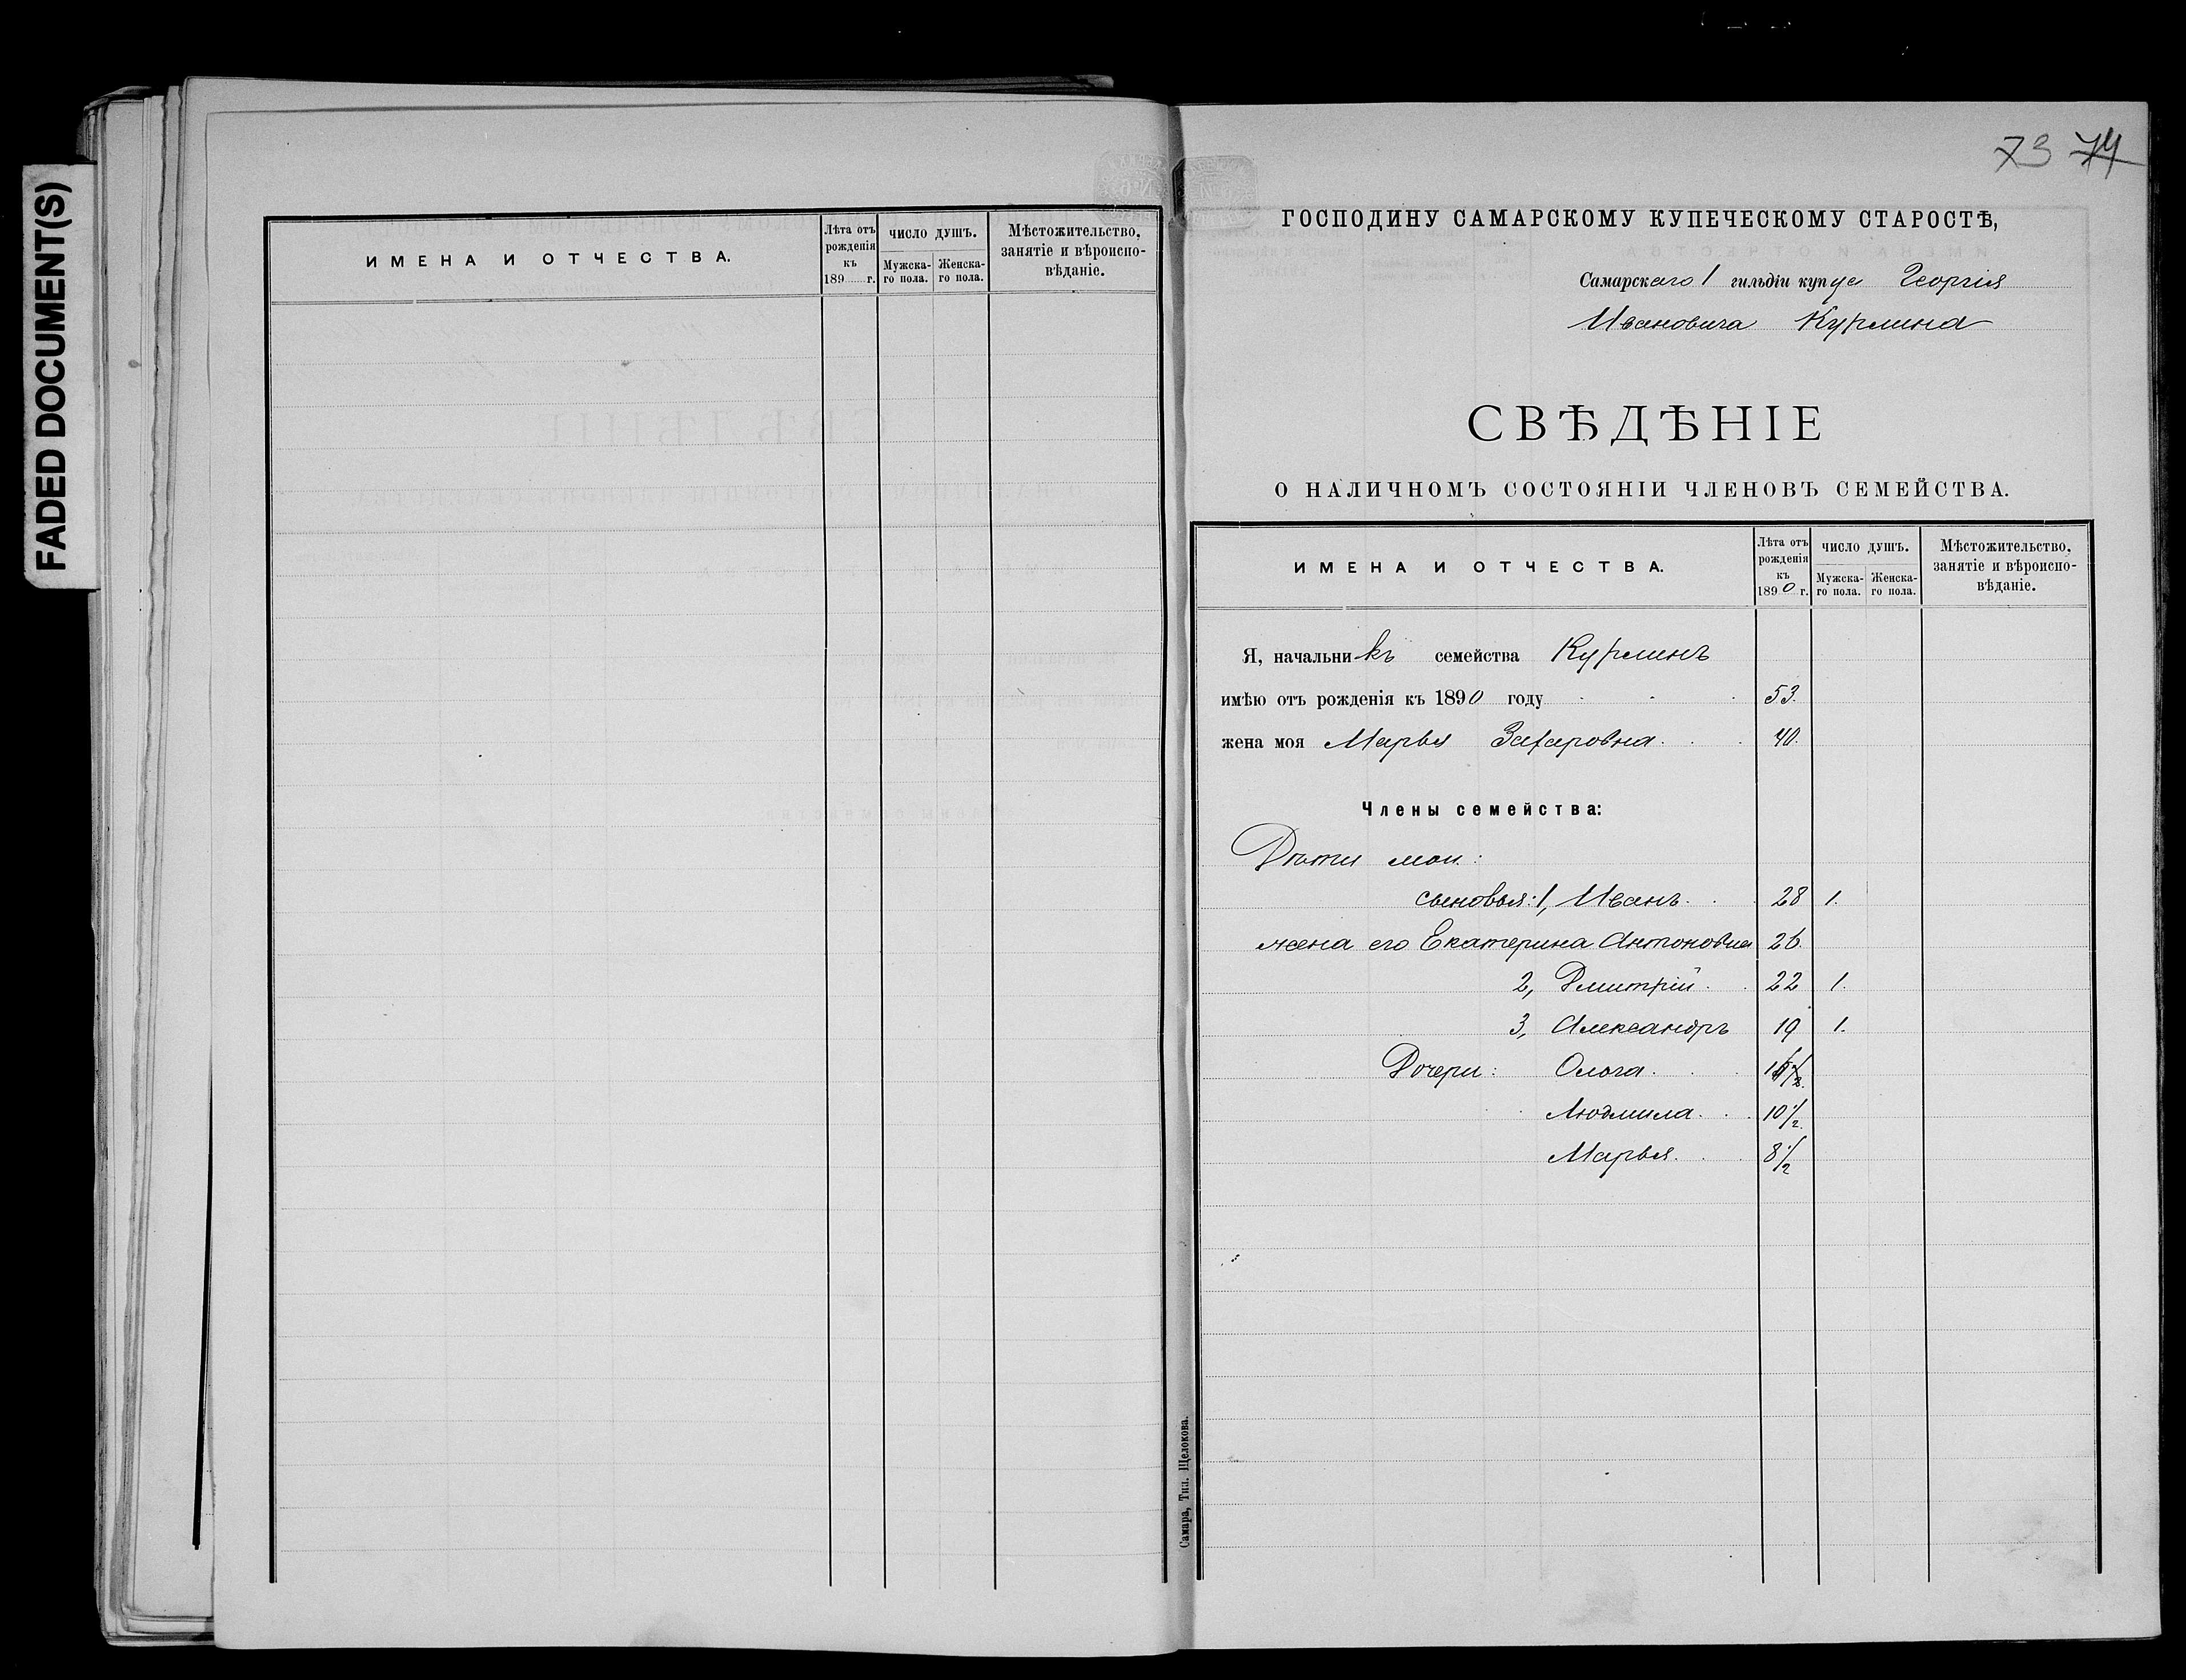 FADED DOCUMENT(S)
ИМЕНА И ОТЧЕСТВА.
Лѣта отъ
рожденія
къ
189 г.
ЧИСЛО ДУШЪ.
Мужска-
го пола.
Женска-
го пола.
Мѣстожительство,
занятіе и вѣроиспо-
вѣданіе.
73 74
ГОСПОДИНУ САМАРСКОМУ КУПЕЧЕСКОМУ СТАРОСТѢ,
Самарскаго 1 гильдіи купца Георгія
Ивановича Курлина
СВѢДѢНІЕ
О НАЛИЧНОМЪ СОСТОЯНІИ ЧЛЕНОВЪ СЕМЕЙСТВА.
ИМЕНА И ОТЧЕСТВА.
Лѣта отъ
рожденія
къ
1890 г.
ЧИСЛО ДУШЪ.
Мужска-
го пола.
Женска-
го пола.
Мѣстожительство,
занятіе и вѣроиспо-
вѣданіе.
Я, начальникъ семейства Курлинъ
имѣю отъ рожденія къ 1890 году 53.
жена моя Марья Захаровна. 40.
Члены семейства:
Дѣти мои:
сыновья: 1, Иванъ. 28 1.
жена его Екатерина Антоновна 26.
2, Дмитрій. 22 1.
3, Александръ 19 1.
Дочери: Ольга.
Людмила. 10 1/2.
Марья. 8 1/2
Самара, Тип. Щелокова.